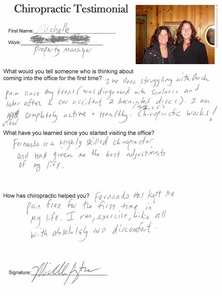 Chiropractic Testimonial
First Name: Michelle
Work:
Property manager
What would you tell someone who is thinking about
coming into the office for the first time? I've been struggling with back
pain since my teens (was diagnosed with scoliosis and
later after a car accident 2 herniated discs) I am
now completely active + healthy. Chiropractic works!
What have you learned since you started visiting the office?
Fernando is a highly skilled chiropractor
and has given me the best adjustments
of my life.
How has chiropractic helped you? Fernando has kept me
pain free for the first time in
my life. I run, exercise, bike all
with absolutely no discomfort.
Signature: